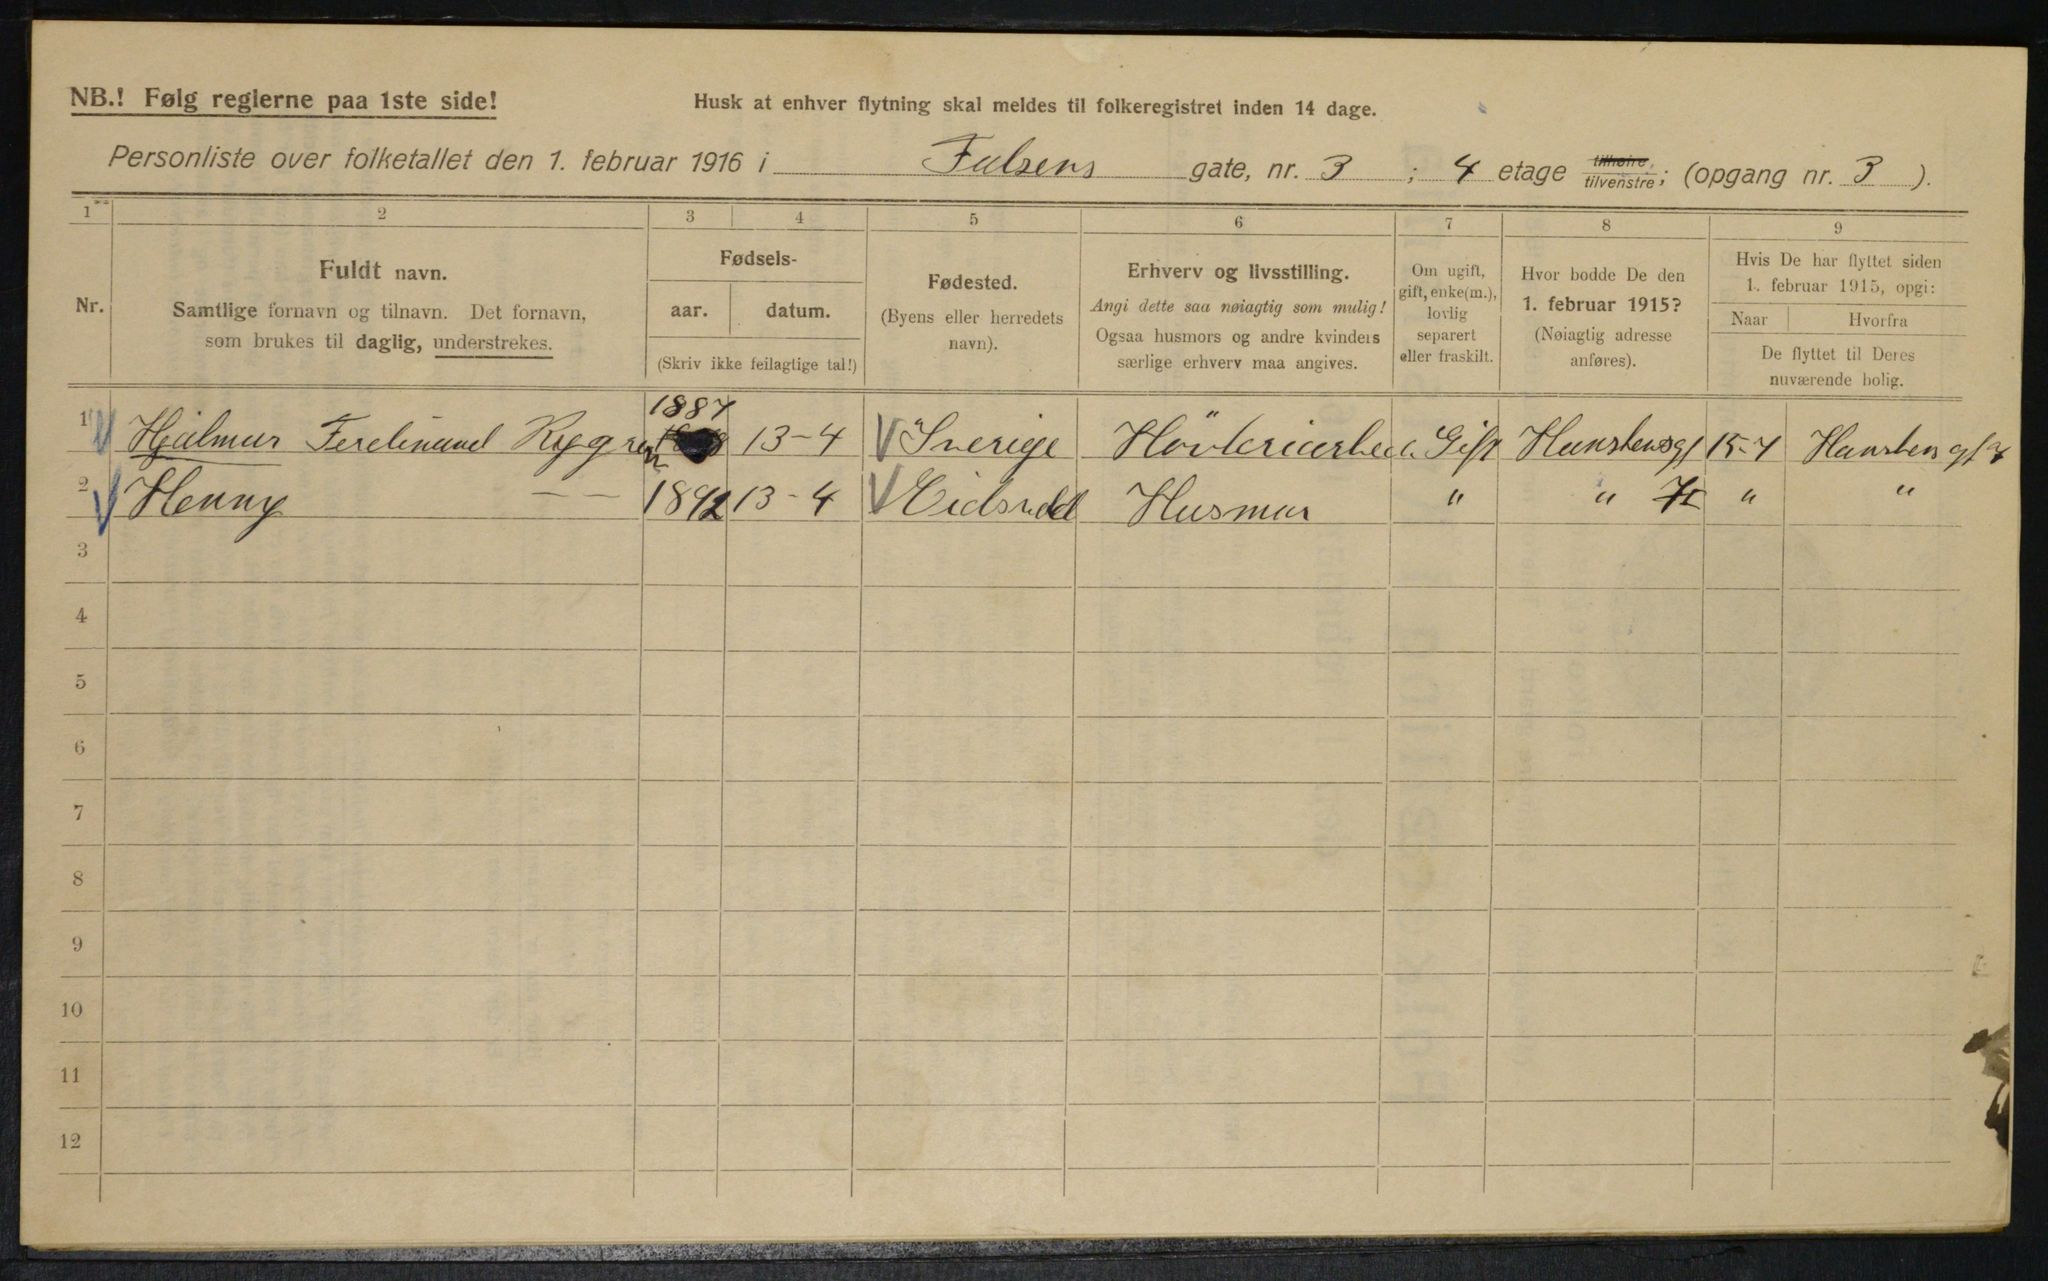 NB.! Følg reglerne paa 1ste side!
Husk at enhver flytning skal meldes til folkeregistret inden 14 dage.
Personliste over folketallet den 1. februar 1916 i Falsens gate, nr. 3 ; 4 etage tilhøire, tilvenstre; (opgang nr. 3 ).
1 2 3 4 5 6 7 8 9
Nr.
Fuldt navn.
Samtlige fornavn og tilnavn. Det fornavn,
som brukes til daglig, understrekes.
Fødsels-
aar. datum.
(Skriv ikke feilagtige tal!)
Fødested.
(Byens eller herredets
navn).
Erhverv og livsstilling.
Angi dette saa nøiagtig som mulig!
Ogsaa husmors og andre kvinders
særlige erhverv maa angives.
Om ugift,
gift, enke(m.),
lovlig
separert
eller fraskilt.
Hvor bodde De den
1. februar 1915?
(Nøiagtig adresse
anføres).
Hvis De har flyttet siden
1. februar 1915, opgi:
Naar Hvorfra
De flyttet til Deres
nuværende bolig.
1 Hjalmar Ferdinand 1887 13-4 Sverige Gift 15-7
2 Henny — — 1892 13-4 Husmor " " " "
3
4
5
6
7
8
9
10
11
12